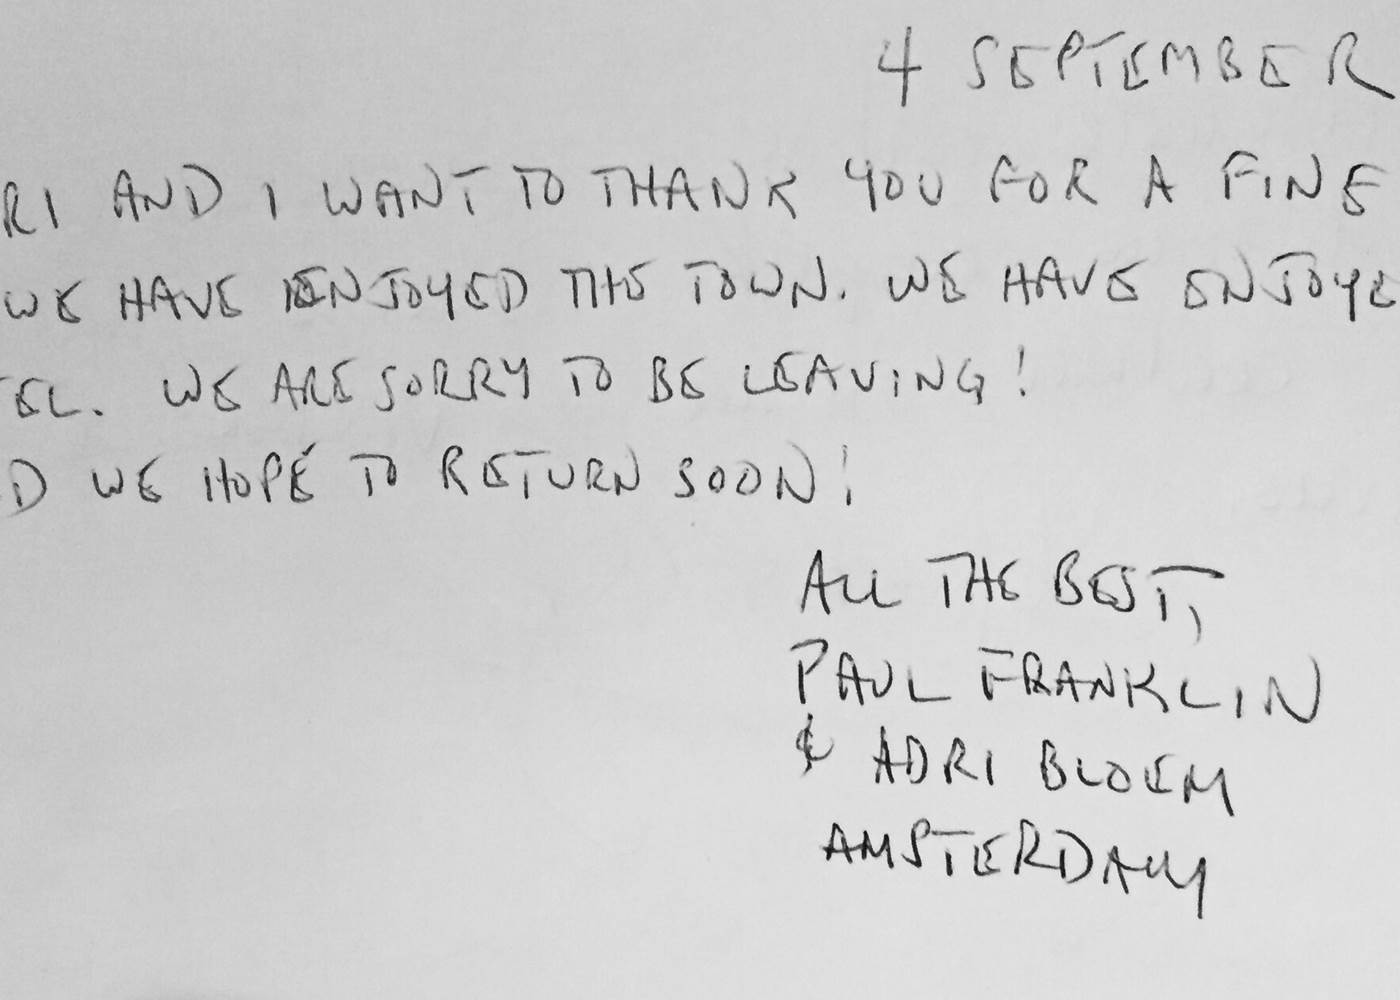 4 SEPTEMBER
RI AND I WANT TO THANK YOU FOR A FINE
WE HAVE ENJOYED THE TOWN. WE HAVE ENJOYE
EL. WE ARE SORRY TO BE LEAVING!
D WE HOPE TO RETURN SOON!
ALL THE BEST,
PAUL FRANKLIN
& ADRI BLOEM
AMSTERDAM